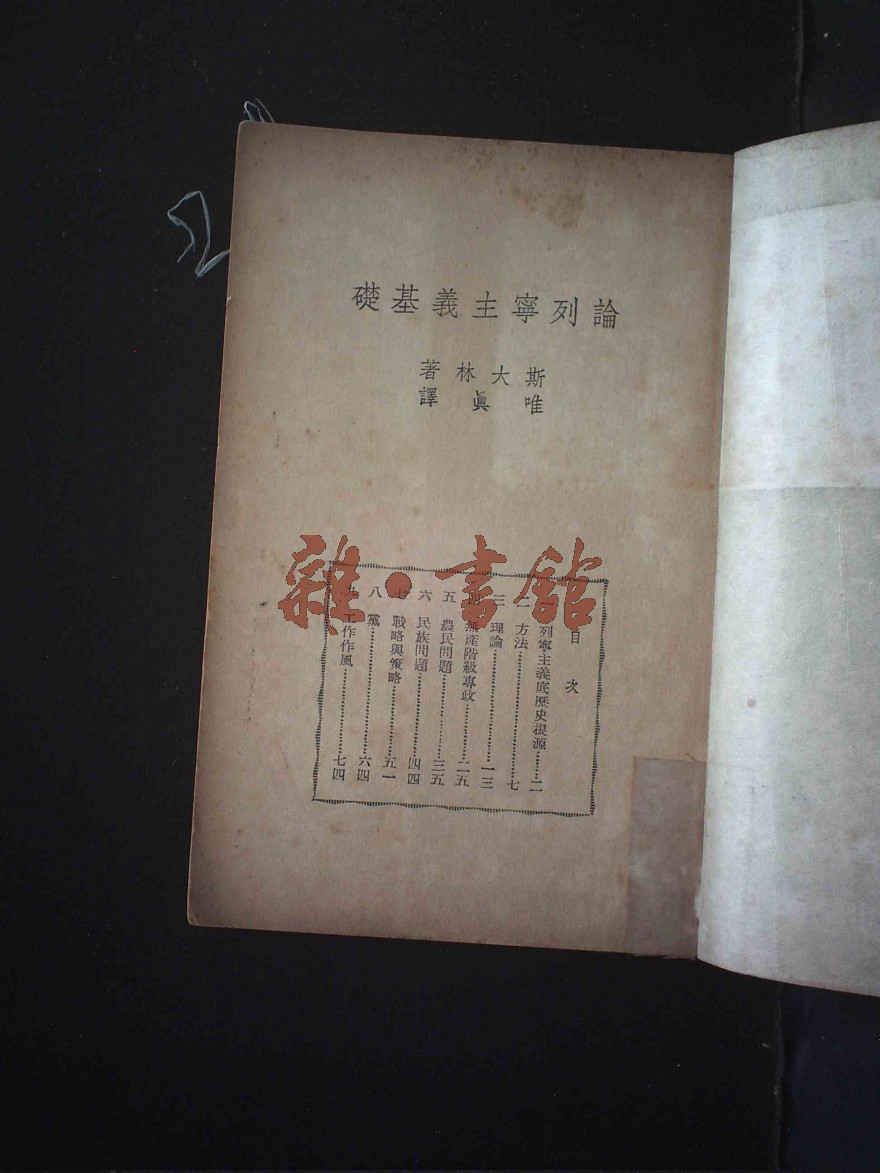 論列寧主義基礎
斯大林著
唯眞譯
雜·書館
目次
一 列寧主義底歷史根源……二
二 方法……七
三 理論……一三
四 無產階級專政……二五
五 農民問題……三五
六 民族問題……四四
七 戰略與策略……五一
八 黨……六四
九 工作作風……七四